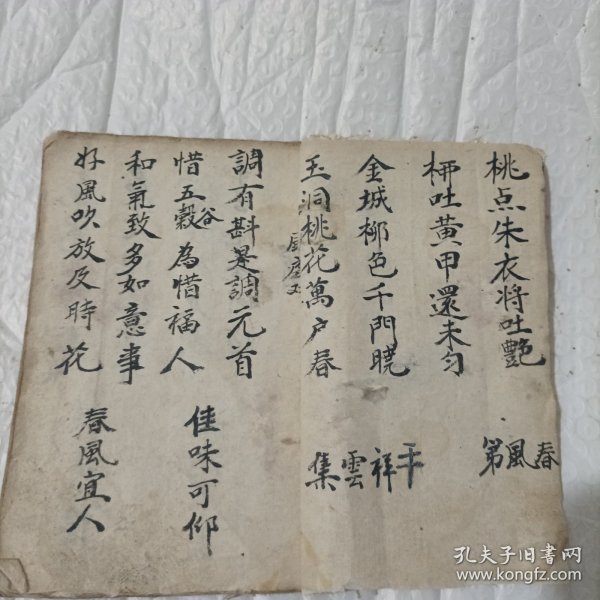 桃点朱衣将吐艷
柳吐黃甲還未匀
春風第
金城柳色千門曉
玉洞桃花萬户春
平祥雲集
調有斟是調元首
惜五穀谷為惜福人
佳味可仰
和氣致多如意事
好風吹放及時花
春風宜人
孔夫子旧书网
www.kongfz.com